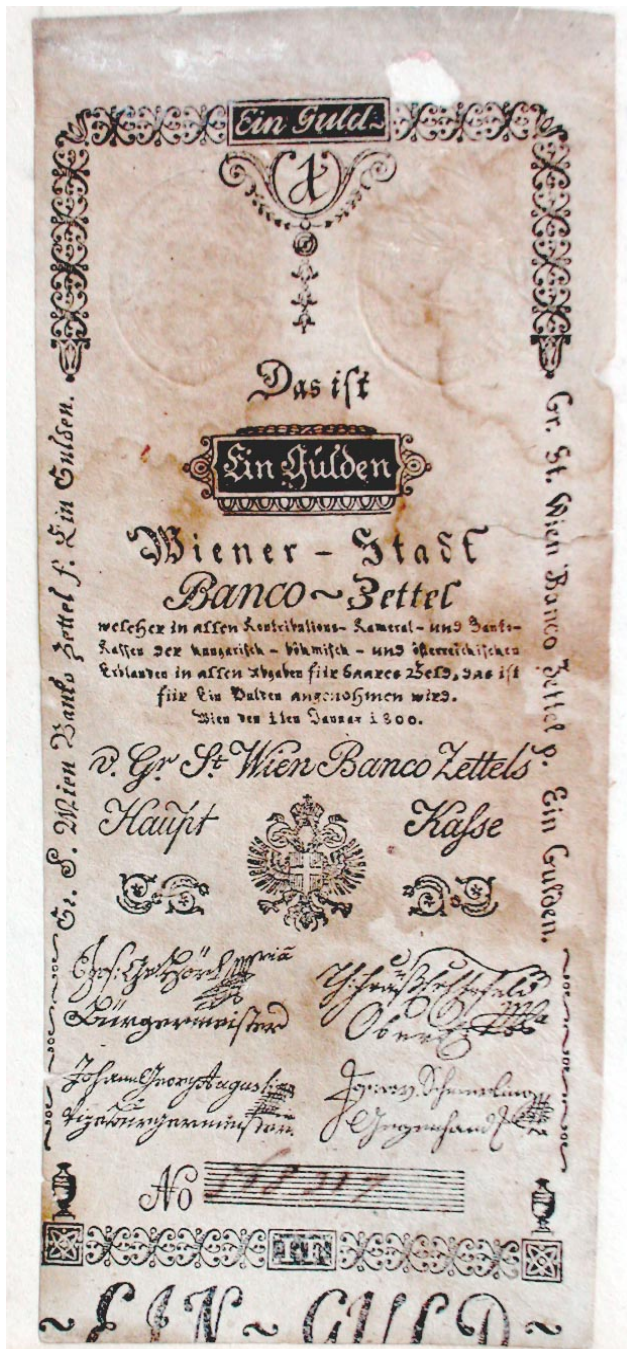 Ein Guld
1
Das ist
Ein Gulden
Wiener - Stadt
Banco ~ Zettel
welcher in allen Kontributions- Kameral- und Banko-
Kassen der hungarisch - böhmisch - und österreichischen
Erblanden in allen Abgaben für baares Geld, das ist
für Ein Gulden angenohmen wird.
Wien den 1ten Januar 1800.
v. Gr St. Wien Banco Zettels
Haupt Kasse
Gr. S. Wien Banko Zettel f. Ein Gulden.
Gr. St. Wien Banco Zettel p. Ein Gulden.
Bürgermeister
Johann Georg Augusti
Vizebürgermeister
No
FF
~ EIN ~ GULD ~